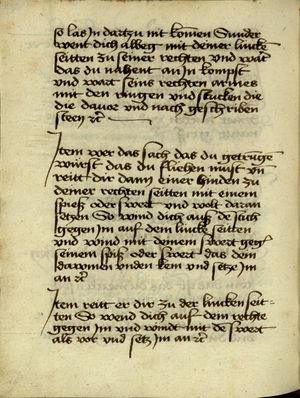 so las in dartzu nit komen Sunder
went dich allweg mit deiner lincke
seitten zu seiner rechten und wart
das du nahent an in kompst
und wart seins rechten armes
mit den ringen und stucken die
die davor und nach geschriben
steen etc
Item wer das sach das du getrunge
wurst das du fliehen must un
reitt dir dann einer hinden zu
deiner rechten seitten mit einem
spieß oder swert und wolt daran
setzen So wind dich auß de
gegen im auf dein lincke seitten
und wind mit deinem swert gegen
seinem spiß oder swert das dein
daumen unden kem und setze im
an etc
Item reitt er dir zu der lincken seit-
ten So wend dich auf dein rechte
gegen im und windt mit de swert
als vor und setz im an etc